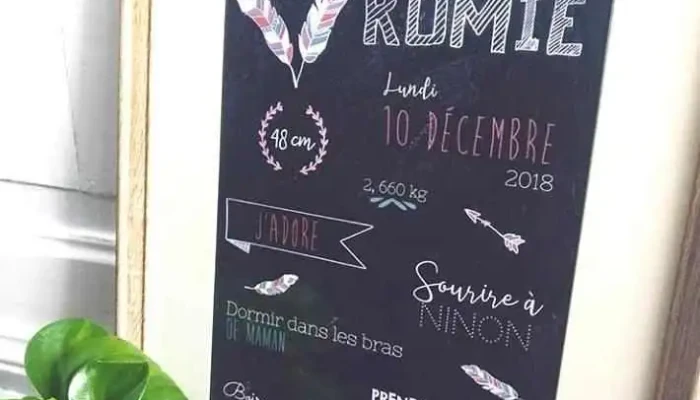 ROMIE
Lundi
10 DÉCEMBRE
2018
48 cm
2,660 kg
J'ADORE
Sourire à
NINON
Dormir dans les bras
DE MAMAN